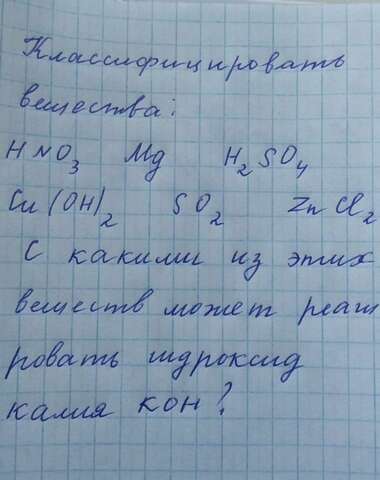 Классифицировать
вещества:
HNO₃ Mg H₂SO₄
Cu(OH)₂ SO₂ ZnCl₂
С какими из этих
веществ может реаги
ровать гидроксид
калия KOH?